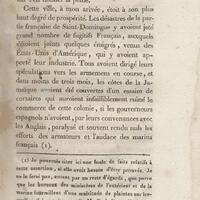 Cette ville, à mon arivée, étoit à son plus
haut degré de prospérité. Les désastres de la par-
tie française de Saint-Domingue y avoient jeté
grand nombre de fugitifs Français, auxquels
s'étoient joints quelques émigrés, venus des
Etats-Unis d'Amérique, qui y avoient ap-
porté leur industrie. Tous avoient dirigé leurs
spéculations vers les armemens en course, et
dans moins de trois mois, les côtes de la Ja-
maïque avoient été couvertes d'un essaim de
corsaires qui auroient infailliblement ruiné le
commerce de cette colonie, si les gouverneurs
espagnols n'avoient, par leurs connivences avec
les Anglais, paralysé et souvent rendu nuls les
efforts des armateurs et l'audace des marins
français (1).
(1) Je pourrois citer ici une foule de faits relatifs à
cette assertion, si elle avoit besoin d'être prouvée. Je
ne le ferai pas, encore par un reste d'égards, que parce
que les bureaux des ministères de l'extérieur et de la
marine fourmillent d'une multitude de plaintes sur les-